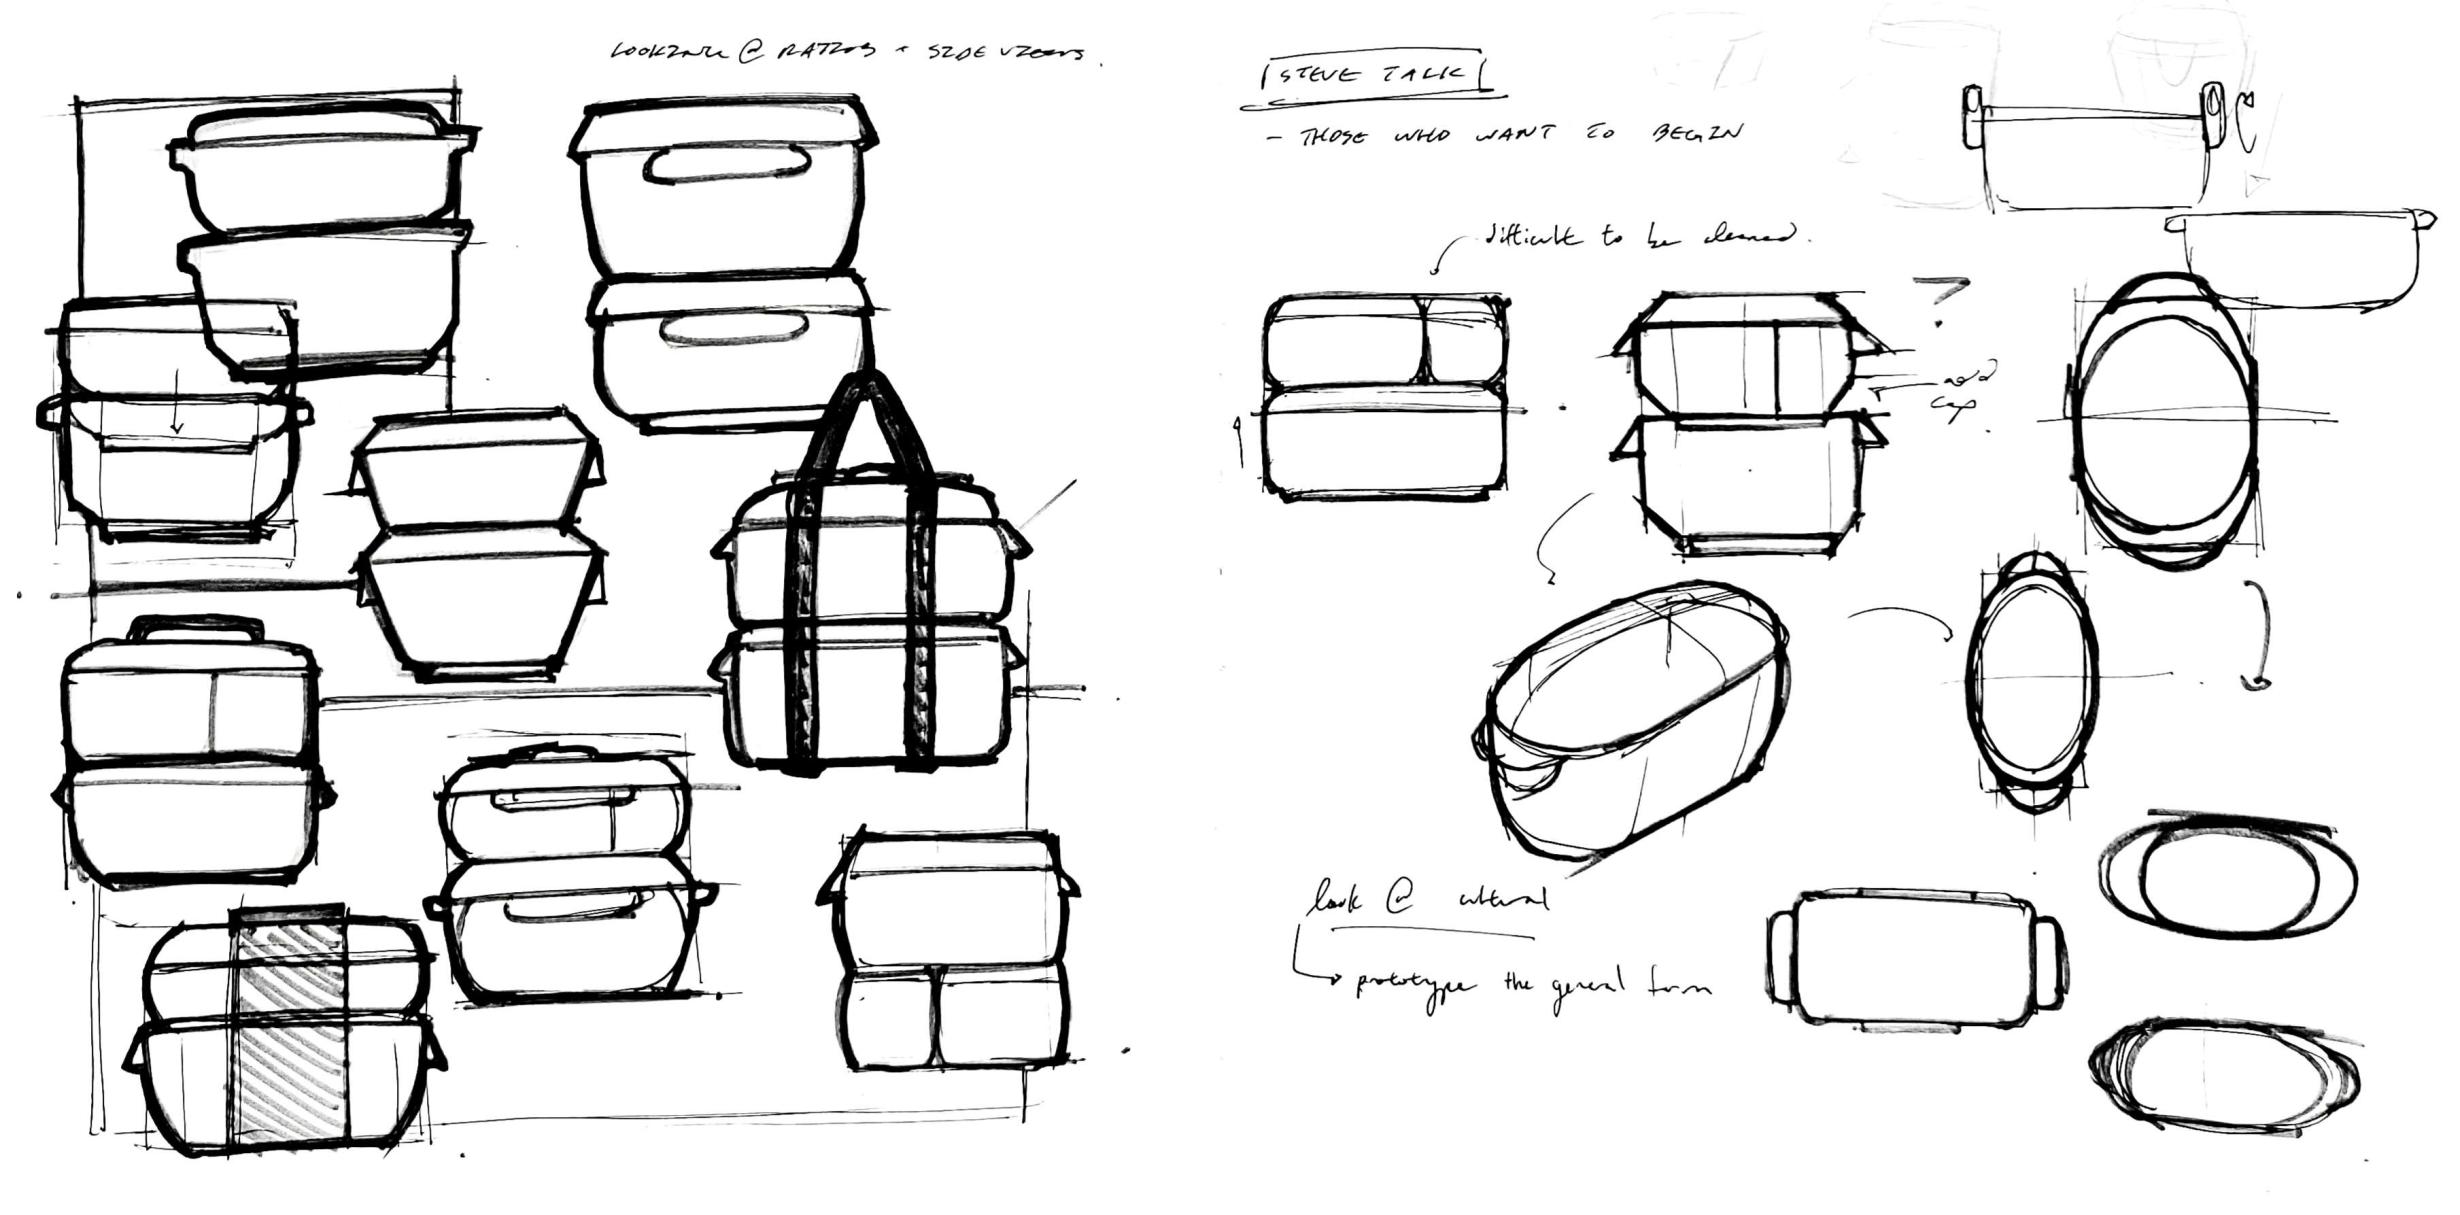 LOOKING @ RATIOS + SIDE VIEWS.
STEVE TALK
- THOSE WHO WANT TO BEGIN
difficult to be cleaned.
?
add
cap
look @ cultural
prototype the general form